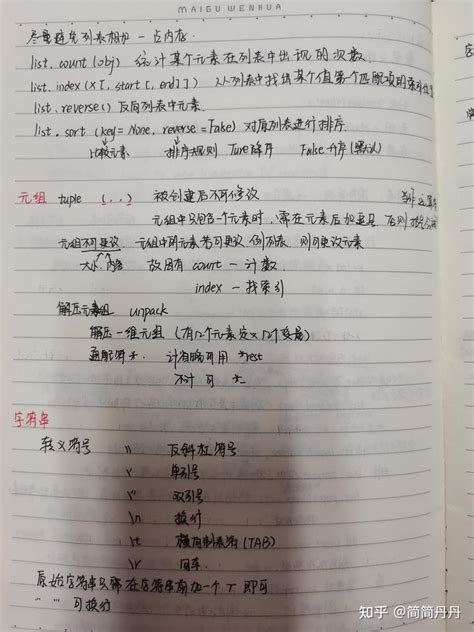 MAIGU WENHUA
尽量避免列表相加 一点内存.
list.count(obj) 统计某个元素在列表中出现的次数
list.index(x[, start[, end]]) 从列表中找出某个值第一个匹配项的索引位置
list.reverse() 反向列表中元素.
list.sort (key=None, reverse=False) 对原列表进行排序.
比较元素 排序规则 Ture降序 False升序(默认)
元组 tuple (..,) 被创建后不可修改
元组中只包含一个元素时, 需在元素后加逗号 否则
元组不可更改 元组中所元素若可更改 例列表, 则可更改元素
大小、内容 故固有 count — 计数
index — 找索引
解压元素组 unpack
解压一维元组 (有几个元素定义几个变量)
通配符 *. 计有时可用 *rest
不计可 *_
字符串
转义符号 \\ 反斜杠符号
\' 单引号
\" 双引号
\n 换行
\t 横向制表符(TAB)
\r 回车
原始字符串只需在字符串前加一个 r 即可
""" """ 可换行
知乎 @简简丹丹